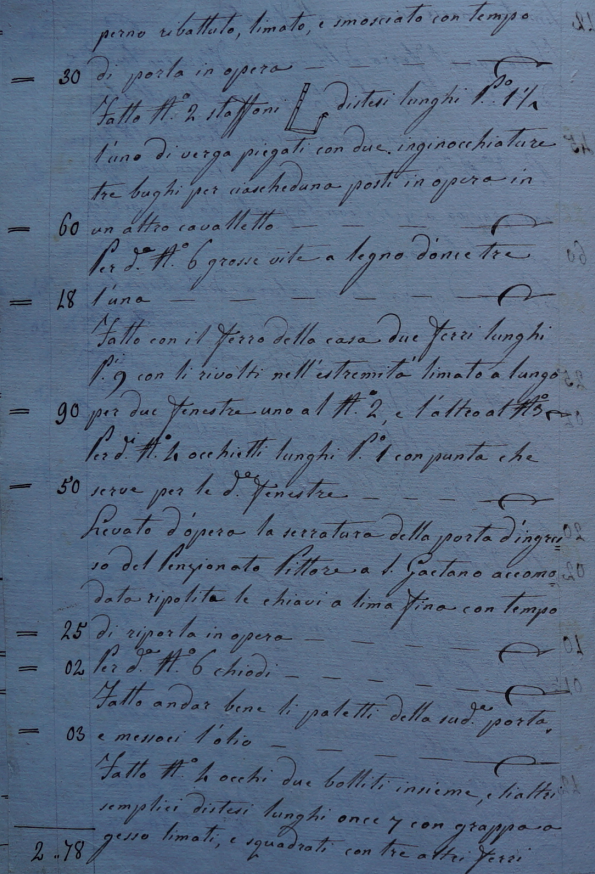 perno ribattuto, limato, e smosciato con tempo
= 30 di porla in opera
Fatto N.º 2 staffoni distesi lunghi P.mo 1½
l'uno di verga piegati con due inginocchiature
tre bughi per ciascheduna posti in opera in
= 60 un altro cavalletto
Per d.e N.º 6 grosse vite a legno d'once tre
= 18 l'una
Fatto con il ferro della casa due ferri lunghi
P.i 9 con li rivolti nell'estremità limato a lungo
= 90 per due fenestre uno al N.º 2, e l'altro al N.º 3
Per d.i N.º 4 occhietti lunghi P.º 1 con punta che
= 50 serve per le d.e fenestre
Levato d'opera la serratura della porta d'ingres=
so del Penzionato Pittore a S. Gaetano accomo=
data ripolite le chiavi a lima fina con tempo
= 25 di riporla in opera
= 02 Per d.a N.º 6 chiodi
Fatto andar bene li paletti della sud.a porta,
= 03 e messoci l'olio
Fatto N.º 4 occhi due bolliti insieme, e li altri
semplici distesi lunghi once 7 con grappa a
gesso limati, e squadrati con tre altri ferri
2..78